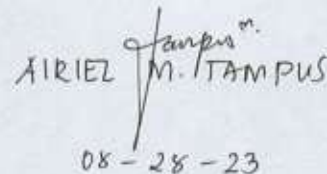 AIRIEL M. TAMPUS
08 - 28 - 23